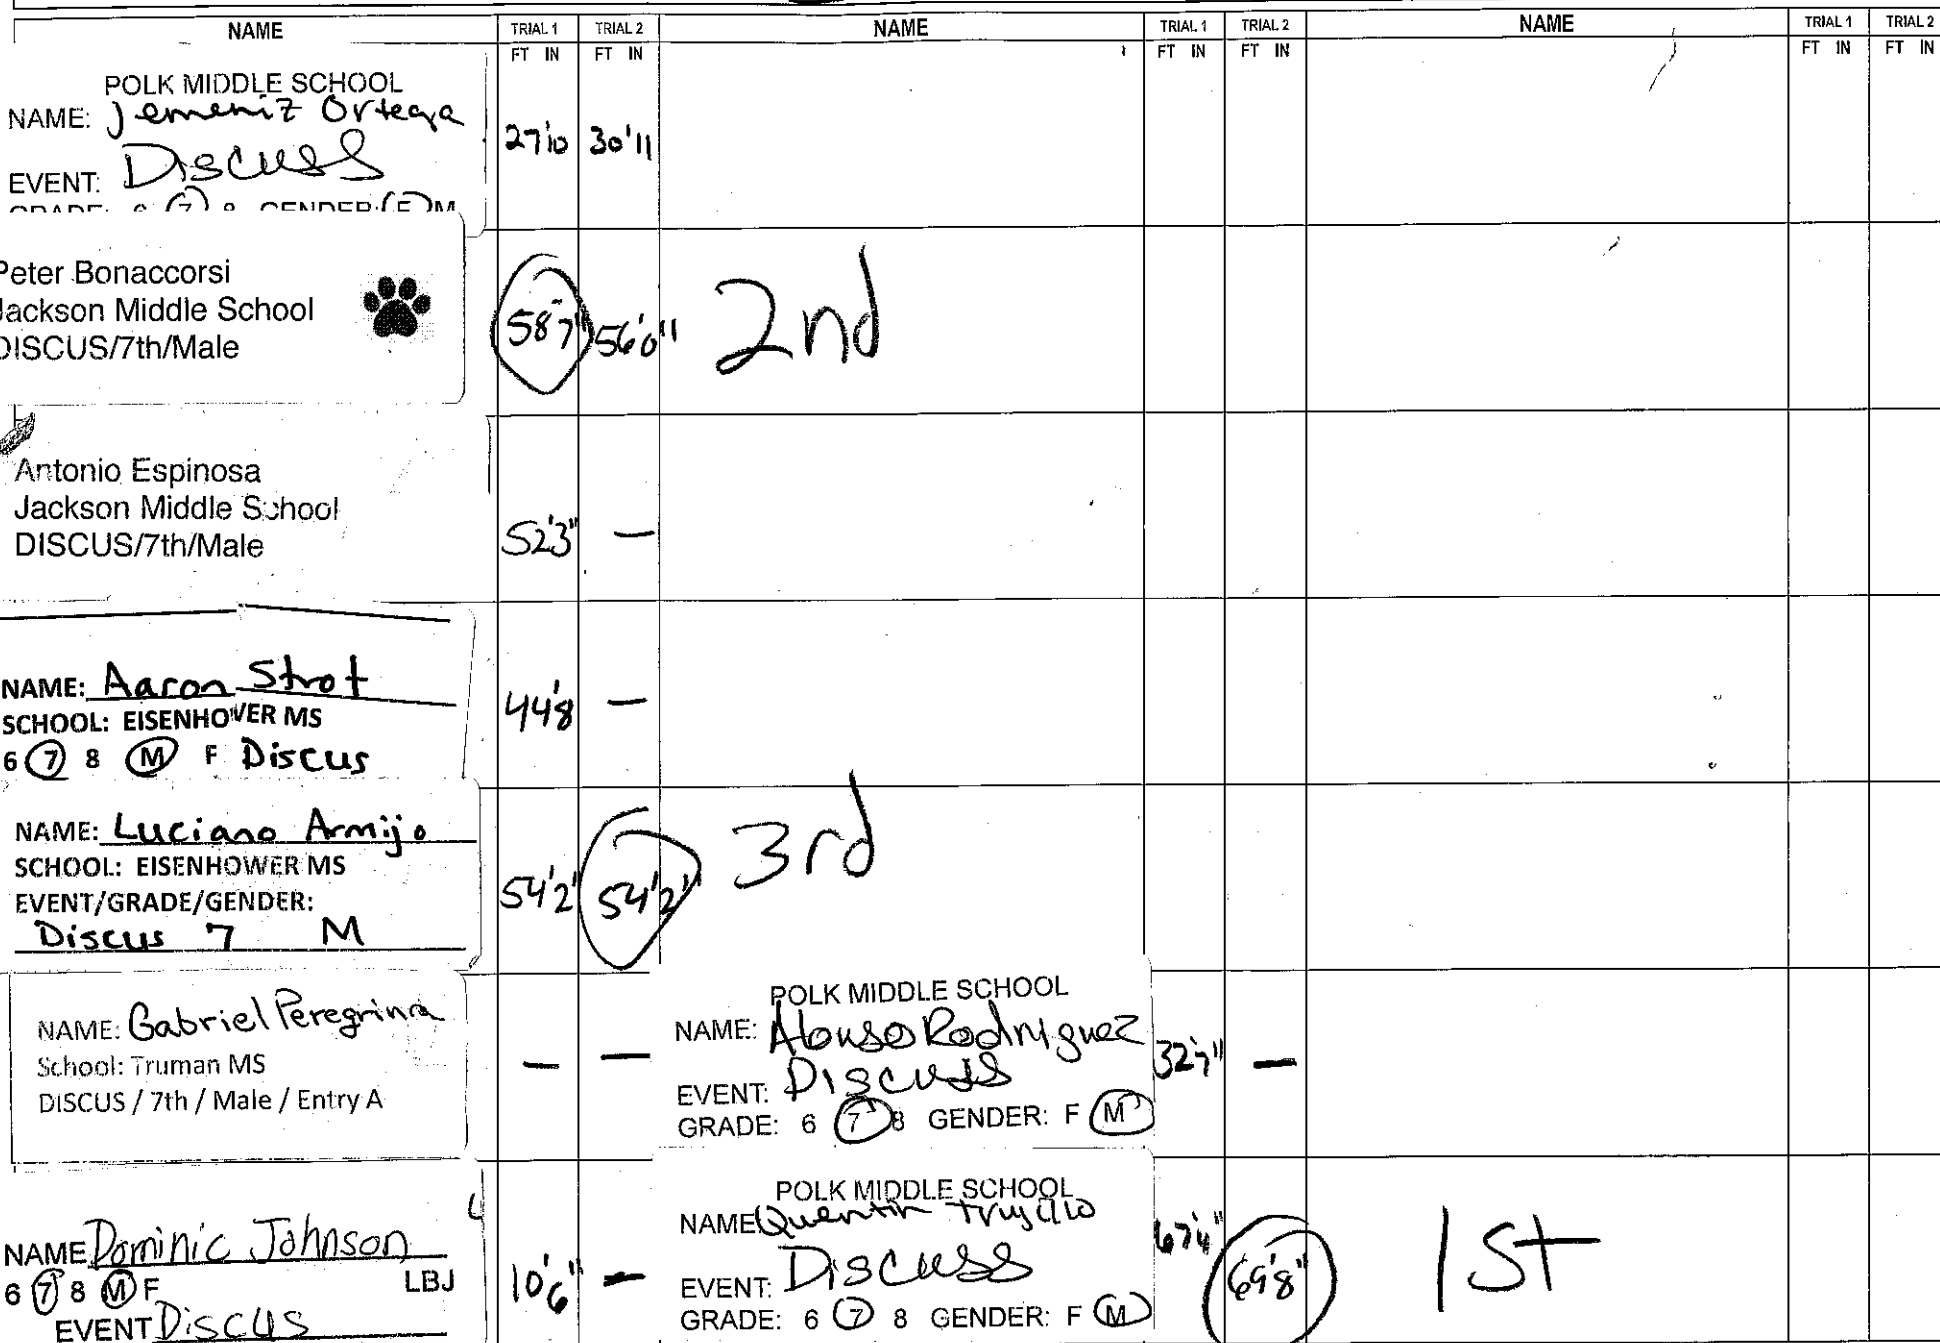 NAME TRIAL 1 TRIAL 2 NAME TRIAL 1 TRIAL 2 NAME TRIAL 1 TRIAL 2
FT IN FT IN FT IN FT IN FT IN FT IN
POLK MIDDLE SCHOOL
NAME: Jemeniz Ortega
EVENT: Discuss
GRADE: 6 7 8 GENDER: F M
27'10 30'11
Peter Bonaccorsi
Jackson Middle School
DISCUS/7th/Male
58'7" 56'0" 2nd
Antonio Espinosa
Jackson Middle School
DISCUS/7th/Male
52'3" —
NAME: Aaron Strot
SCHOOL: EISENHOWER MS
6 7 8 M F Discus
44'8 —
NAME: Luciano Armijo
SCHOOL: EISENHOWER MS
EVENT/GRADE/GENDER:
Discus 7 M
54'2" 54'2" 3rd
NAME: Gabriel Peregrina
School: Truman MS
DISCUS / 7th / Male / Entry A
— —
POLK MIDDLE SCHOOL
NAME: Alonso Rodriguez
EVENT: Discuss
GRADE: 6 7 8 GENDER: F M
32'7" —
NAME Dominic Johnson
6 7 8 M F LBJ
EVENT Discus
10'6" —
POLK MIDDLE SCHOOL
NAME Quentin Trujillo
EVENT: Discuss
GRADE: 6 7 8 GENDER: F M
69'8" 1st